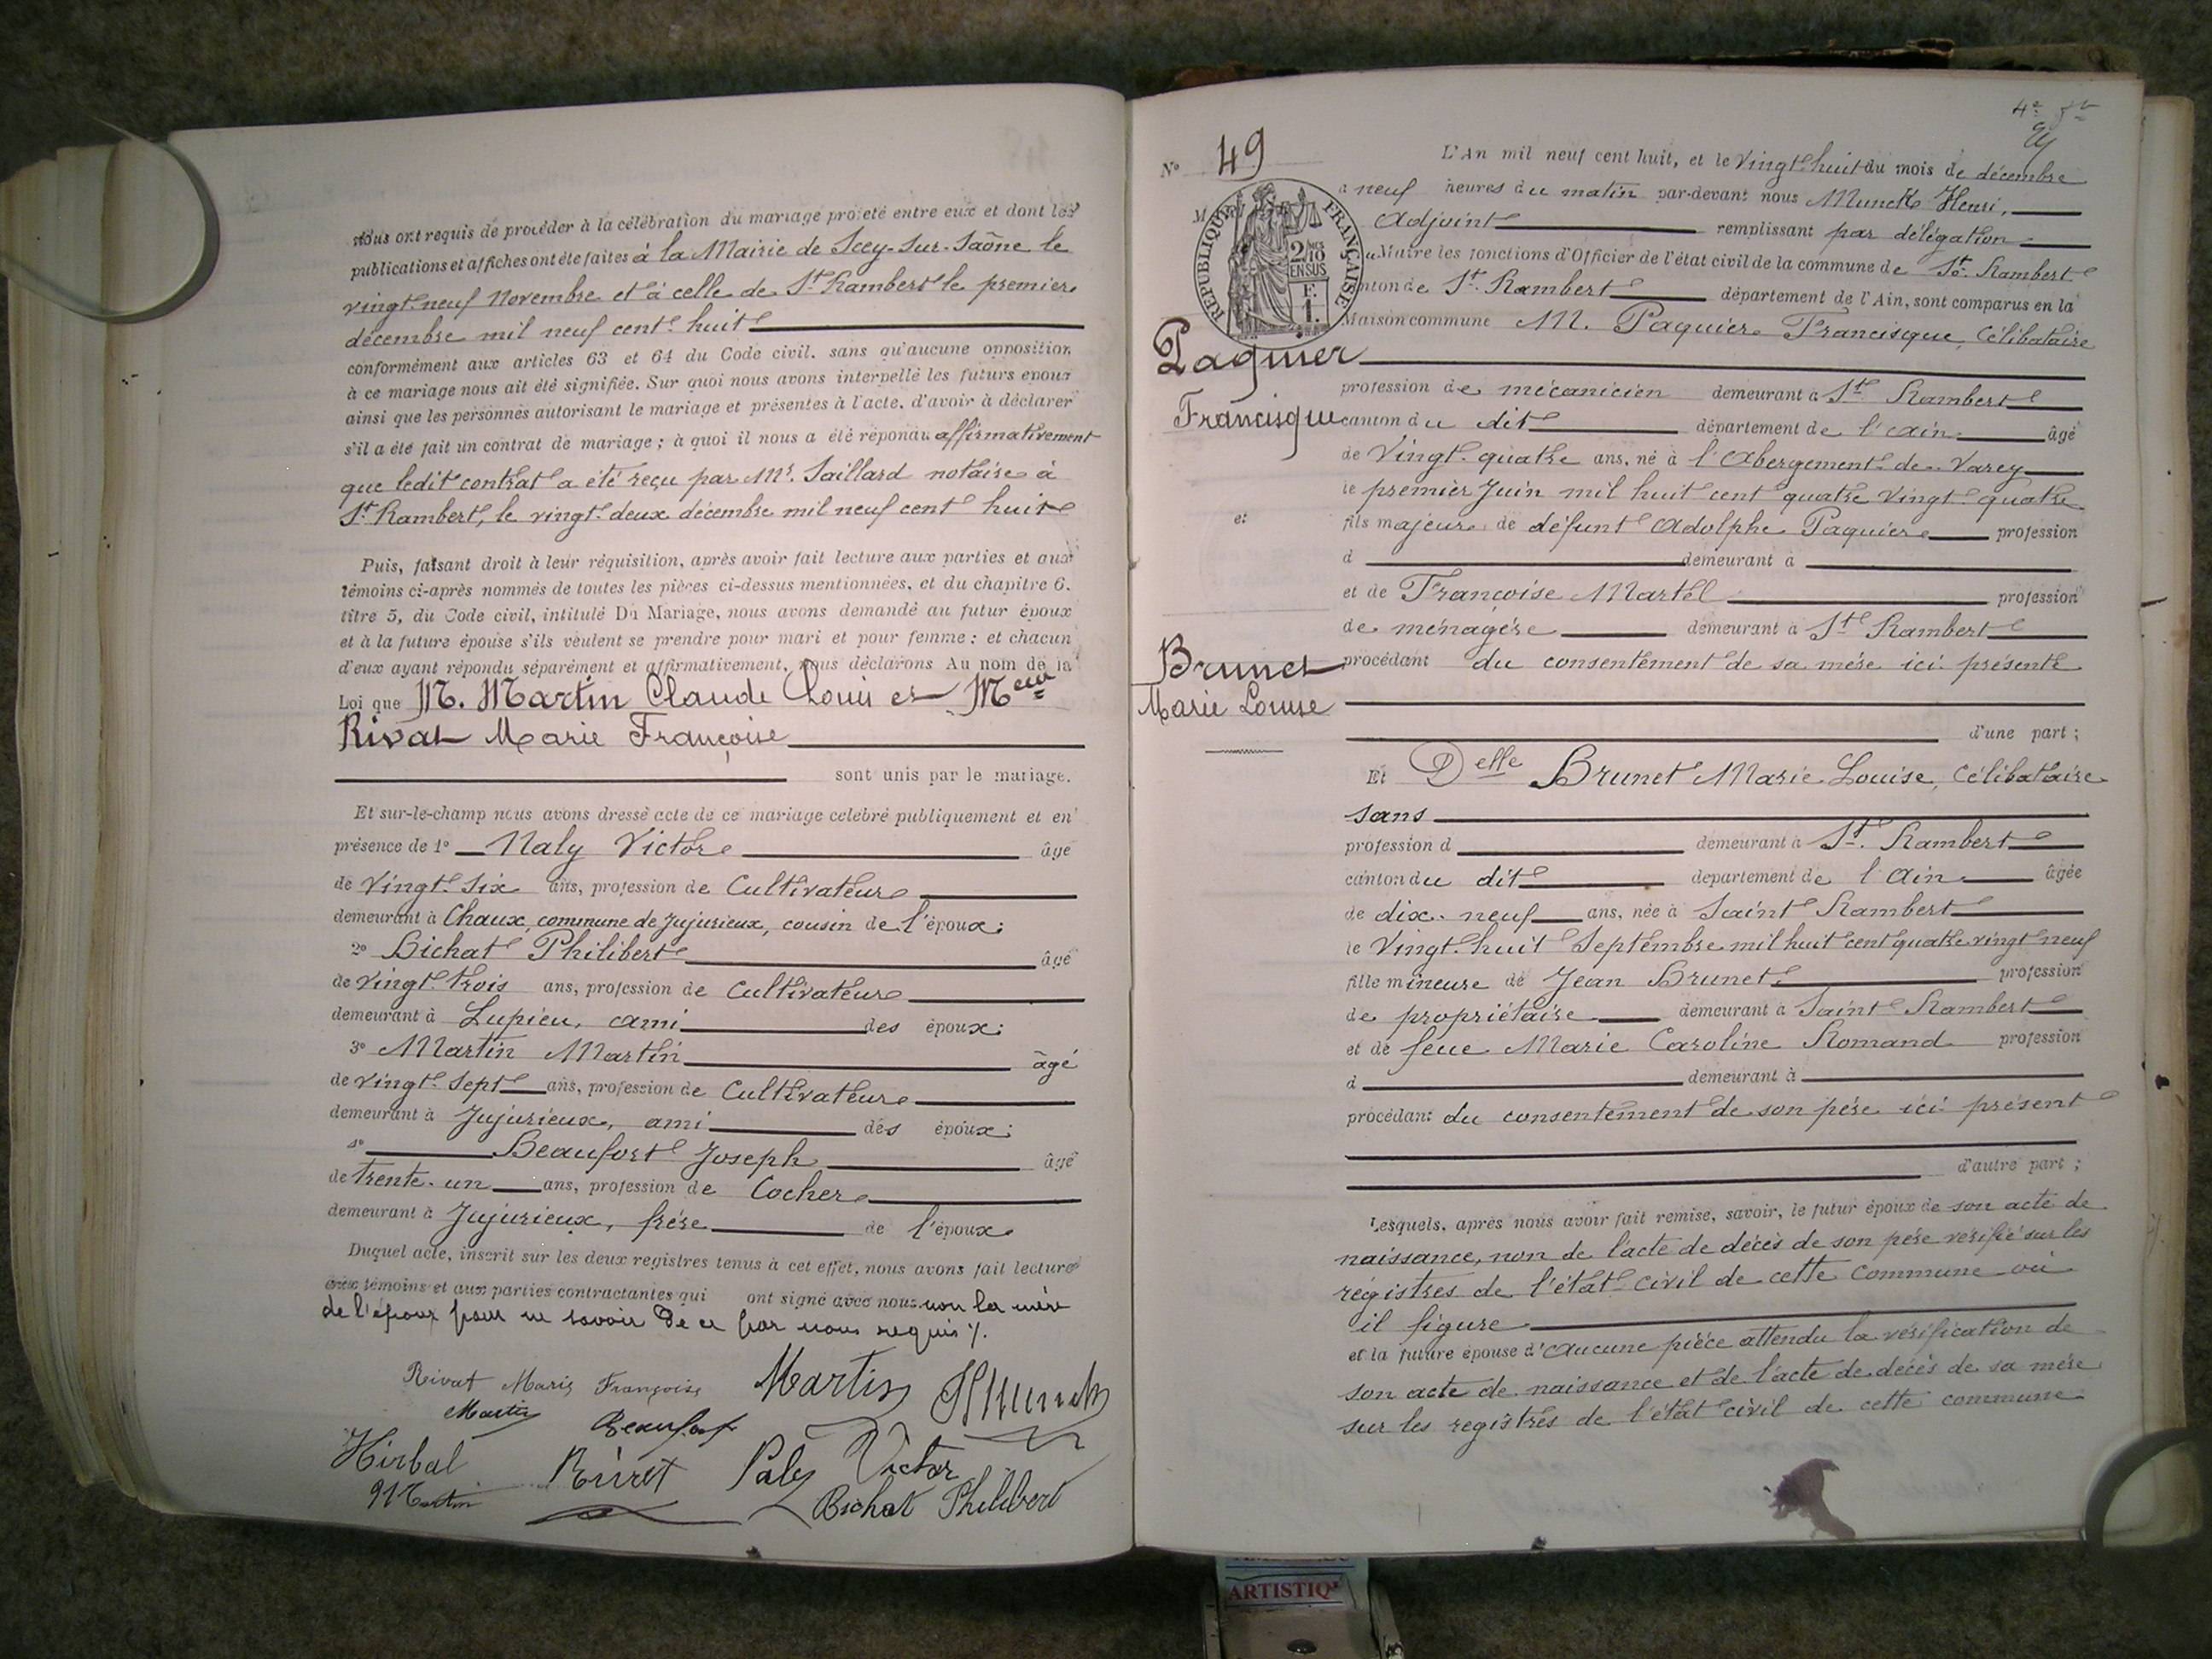 nous ont requis de procéder à la célébration du mariage projeté entre eux et dont les
publications et affiches ont été faites à la Mairie de Scey-sur-Saône le
vingt-neuf Novembre et à celle de St Rambert le premier
décembre mil neuf cent huit
conformément aux articles 63 et 64 du Code civil. sans qu'aucune opposition
à ce mariage nous ait été signifiée. Sur quoi nous avons interpellé les futurs epoux
ainsi que les personnes autorisant le mariage et présentes à l'acte, d'avoir à déclarer
s'il a été fait un contrat de mariage ; à quoi il nous a été répondu affirmativement
que ledit contrat a été reçu par Mr. Saillard notaire à
St Rambert, le vingt-deux décembre mil neuf cent huit
Puis, faisant droit à leur réquisition, après avoir fait lecture aux parties et aux
témoins ci-après nommés de toutes les pièces ci-dessus mentionnées, et du chapitre 6.
titre 5, du Code civil, intitulé Du Mariage, nous avons demandé au futur époux
et à la future épouse s'ils veulent se prendre pour mari et pour femme : et chacun
d'eux ayant répondu séparément et affirmativement, nous déclarons Au nom de la
Loi que M. Martin Claude Louis et Melle
Rivat Marie Françoise
sont unis par le mariage.
Et sur-le-champ nous avons dressé acte de ce mariage celebré publiquement et en
présence de 1° Naly Victor âgé
de vingt-six ans, profession de Cultivateur
demeurant à Chaux, commune de Jujurieux, cousin de l'époux;
2° Bichat Philibert âgé
de vingt-trois ans, profession de Cultivateur
demeurant à Lupieu, ami des époux;
3° Martin Martin âgé
de vingt-sept ans, profession de Cultivateur
demeurant à Jujurieux, ami des époux;
4° Beaufort Joseph âgé
de trente-un ans, profession de Cocher
demeurant à Jujurieux, frère de l'époux
Duquel acte, inscrit sur les deux registres tenus à cet effet, nous avons fait lecture
aux témoins et aux parties contractantes qui ont signé avec nous non la mère
de l'époux pour ne savoir de ce par nous requis %.
Rivat Marie Françoise Martin HMunck
Martin Beaufort
Hirbal Ruret Paly Victor
M Martin Bichat Philibert
4e
N° 49
L'An mil neuf cent huit, et le Vingt-huit du mois de décembre
à neuf heures du matin par-devant nous Munck Henri,
Adjoint remplissant par délégation
du Maire les fonctions d'Officier de l'état civil de la commune de St. Rambert
canton de St. Rambert département de l'Ain, sont comparus en la
Maison commune M. Paquier Francisque, Célibataire
REPUBLIQUE FRANÇAISE
2/10 EN SUS
F.
1.
Paquier
Francisque
et
Brunet
Marie Louise
profession de mécanicien demeurant à St. Rambert
canton du dit département de l'ain âgé
de Vingt-quatre ans, né à l'Abergement-de-Varey
le premier Juin mil huit cent quatre vingt-quatre
fils majeur de défunt Adolphe Paquier profession
d demeurant à
et de Françoise Martel profession
de ménagère demeurant à St Rambert
procédant du consentement de sa mère ici présente
d'une part ;
Et Delle Brunet Marie Louise, Célibataire
sans
profession d demeurant à St. Rambert
canton du dit departement de l'Ain âgée
de dix-neuf ans, née à Saint Rambert
le Vingt-huit Septembre mil huit cent quatre vingt neuf
fille mineure de Jean Brunet profession
de propriétaire demeurant à Saint Rambert
et de feue Marie Caroline Romand profession
d demeurant à
procédant du consentement de son père ici présent
d'autre part ;
Lesquels, après nous avoir fait remise, savoir, le futur époux de son acte de
naissance, non de l'acte de décès de son père vérifié sur les
régistres de l'état civil de cette commune où
il figure
et la future épouse d'aucune pièce attendu la vérification de
son acte de naissance et de l'acte de décès de sa mère
sur les registres de l'état civil de cette commune
ARTISTIQ